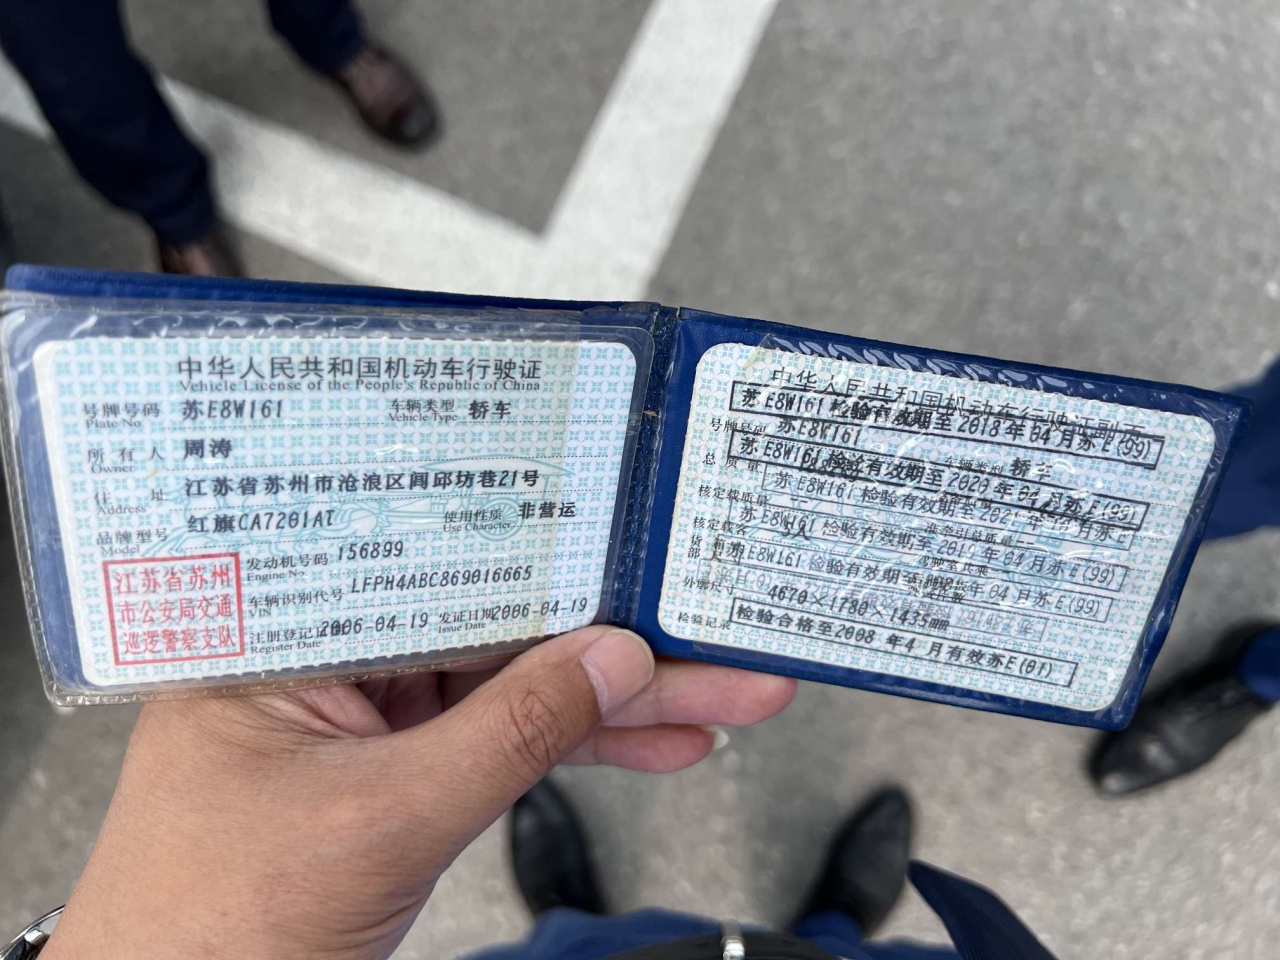 中华人民共和国机动车行驶证
Vehicle License of the People's Republic of China
号牌号码 苏E8W161 车辆类型 轿车
Plate No. Vehicle Type
所有人 周涛
Owner
住址 江苏省苏州市沧浪区阊邱坊巷21号
Address
品牌型号 红旗CA7201AT 使用性质 非营运
Model Use Character
江苏省苏州
市公安局交通
巡逻警察支队
发动机号码 156899
Engine No.
车辆识别代号 LFPH4ABC869016665
VIN
注册登记日 2006-04-19 发证日期 2006-04-19
Register Date Issue Date
中华人民共和国机动车行驶证副页
苏E8W161 检验有效期至2018年04月苏E(99)
号牌号码 苏E8W161 车辆类型 轿车
苏E8W161 检验有效期至2020年04月苏E(99)
总质量
苏E8W161 检验有效期至
核定载质量
苏E8W161 检验有效期至2019年04月苏E(99)
核定载客
苏E8W161 检验有效期至 年04月苏E(99)
外廓尺寸 4670×1780×1435mm
检验记录 检验合格至2008年4月有效苏E(01)